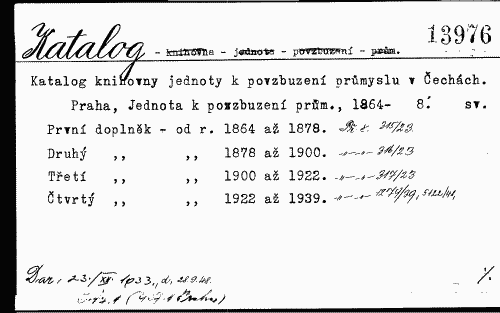 Katalog - knihovna - jednota - povzbuzení - prům. 13976
Katalog knihovny jednoty k povzbuzení průmyslu v Čechách.
Praha, Jednota k povzbuzení prům., 1864- 8° sv.
První doplněk - od r. 1864 až 1878. Př. č. 315/23.
Druhý ,, ,, 1878 až 1900. -„- -„- 316/23
Třetí ,, ,, 1900 až 1922. -„- -„- 317/23
Čtvrtý ,, ,, 1922 až 1939. -„- -„- 1279/39, 5122/48,
Dar, 23./XI 1933., d. 28.9.48. /.